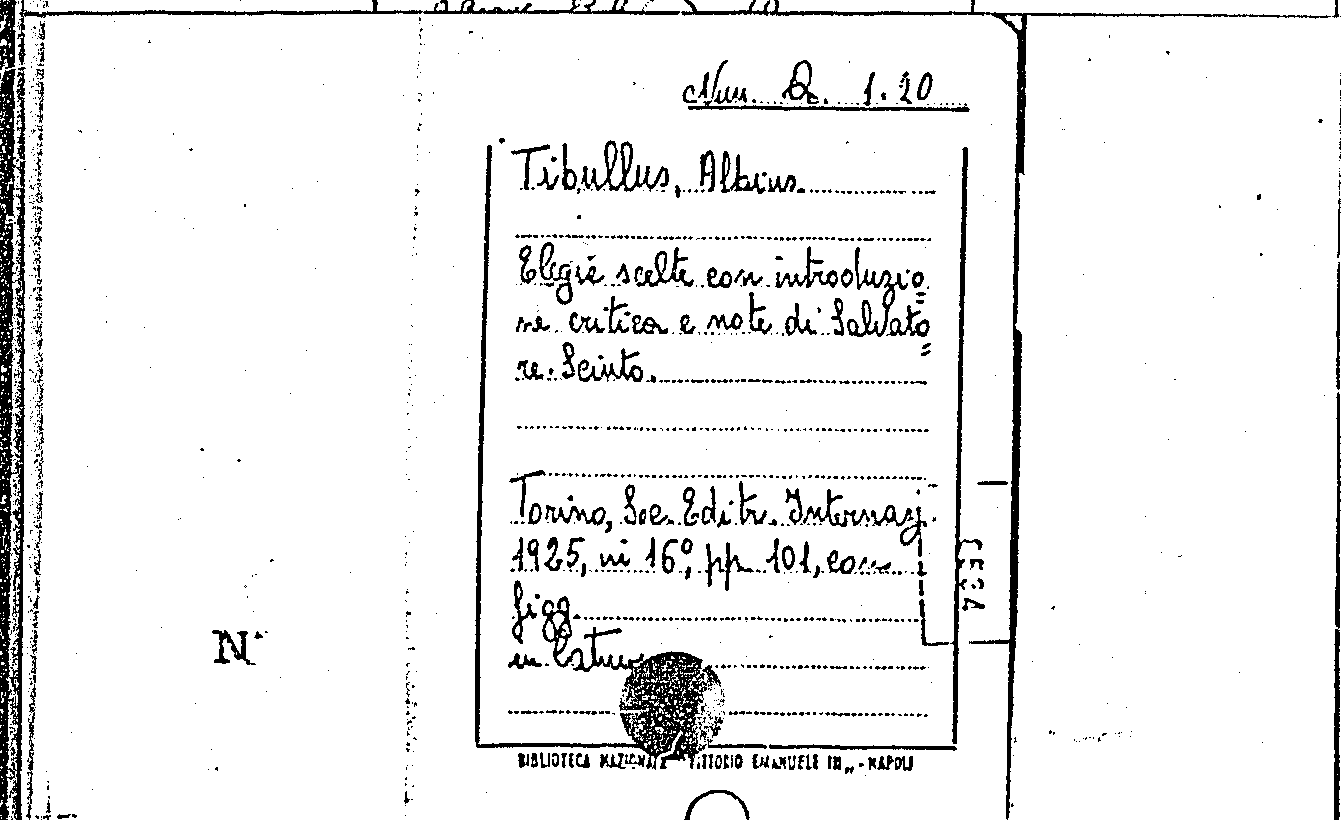 Num. Q. 1.20
Tibullus, Albius.
Elegie scelte con introduzio=
ne critica e note di Salvato=
re Sciuto.
Torino, Soc. Editr. Internaz.
1925, in 16°, pp. 101, con
figg.
in
N.
BIBLIOTECA NAZIONALE VITTORIO EMANUELE III„ - NAPOLI